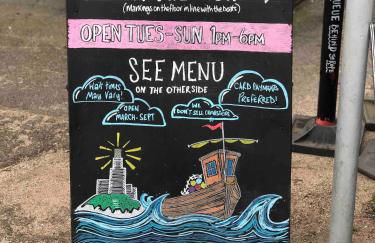 (Markings on the floor in line with the boats)
OPEN TUES-SUN. 1PM-6PM
SEE MENU
ON THE OTHERSIDE
Wait times
May Vary!
OPEN
MARCH-SEPT
WE
DON'T SELL
CARD PAYMENTS
PREFERRED!
QUEUE BEHIND SIGN